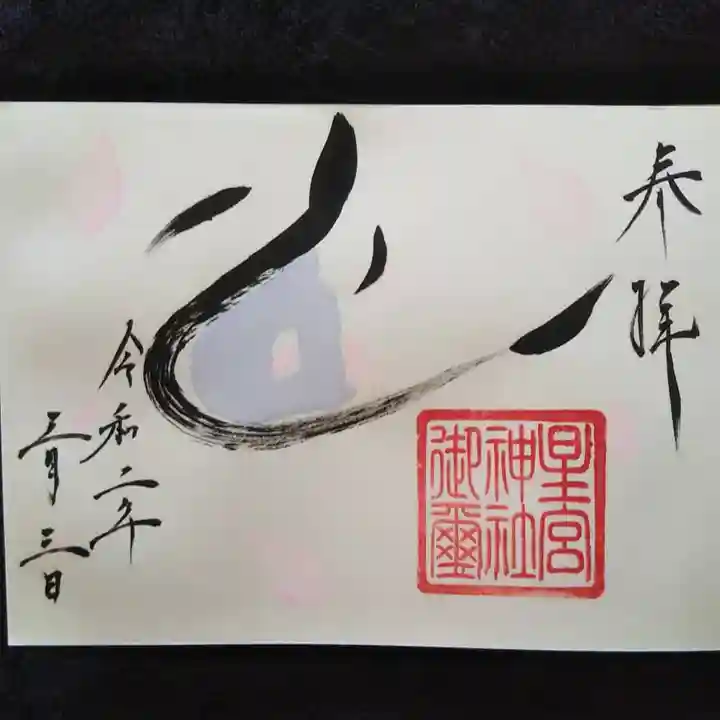 奉拝
星宮
神社
御璽
令和二年
三月三日